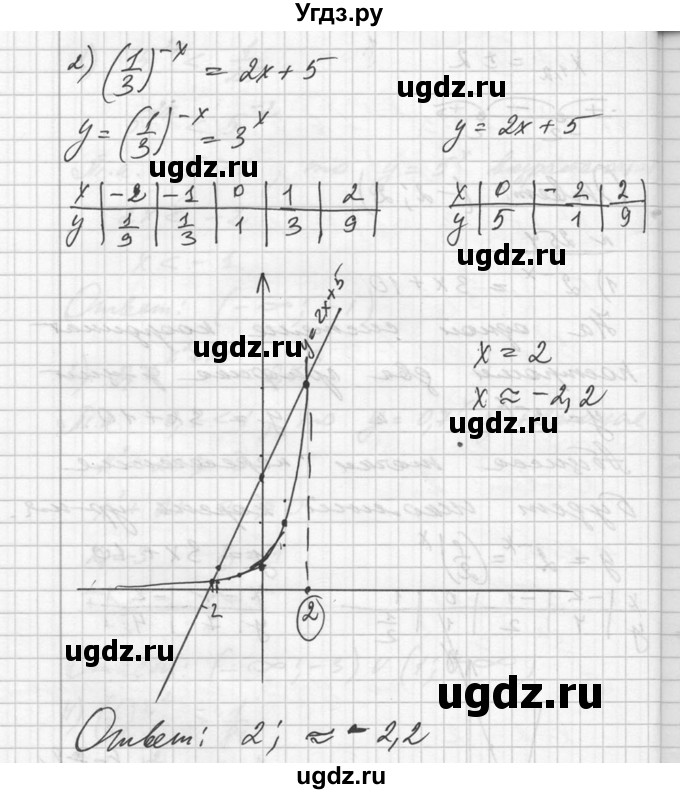 Угдз.ру
2) (1/3)^-x = 2x + 5
ugdz.ru
y = (1/3)^-x = 3^x y = 2x + 5
ugdz.ru
x | -2 | -1 | 0 | 1 | 2 |
y | 1/9 | 1/3 | 1 | 3 | 9 |
x | 0 | -2 | 2
y | 5 | 1 | 9 |
ugdz.ru
y = 2x x 5
ugdz.ru
x = 2
x ≈ -2,2
ugdz.ru
-2 2
ugdz.ru
ugdz.ru
Ответ: 2; ≈ -2,2
ugdz.ru